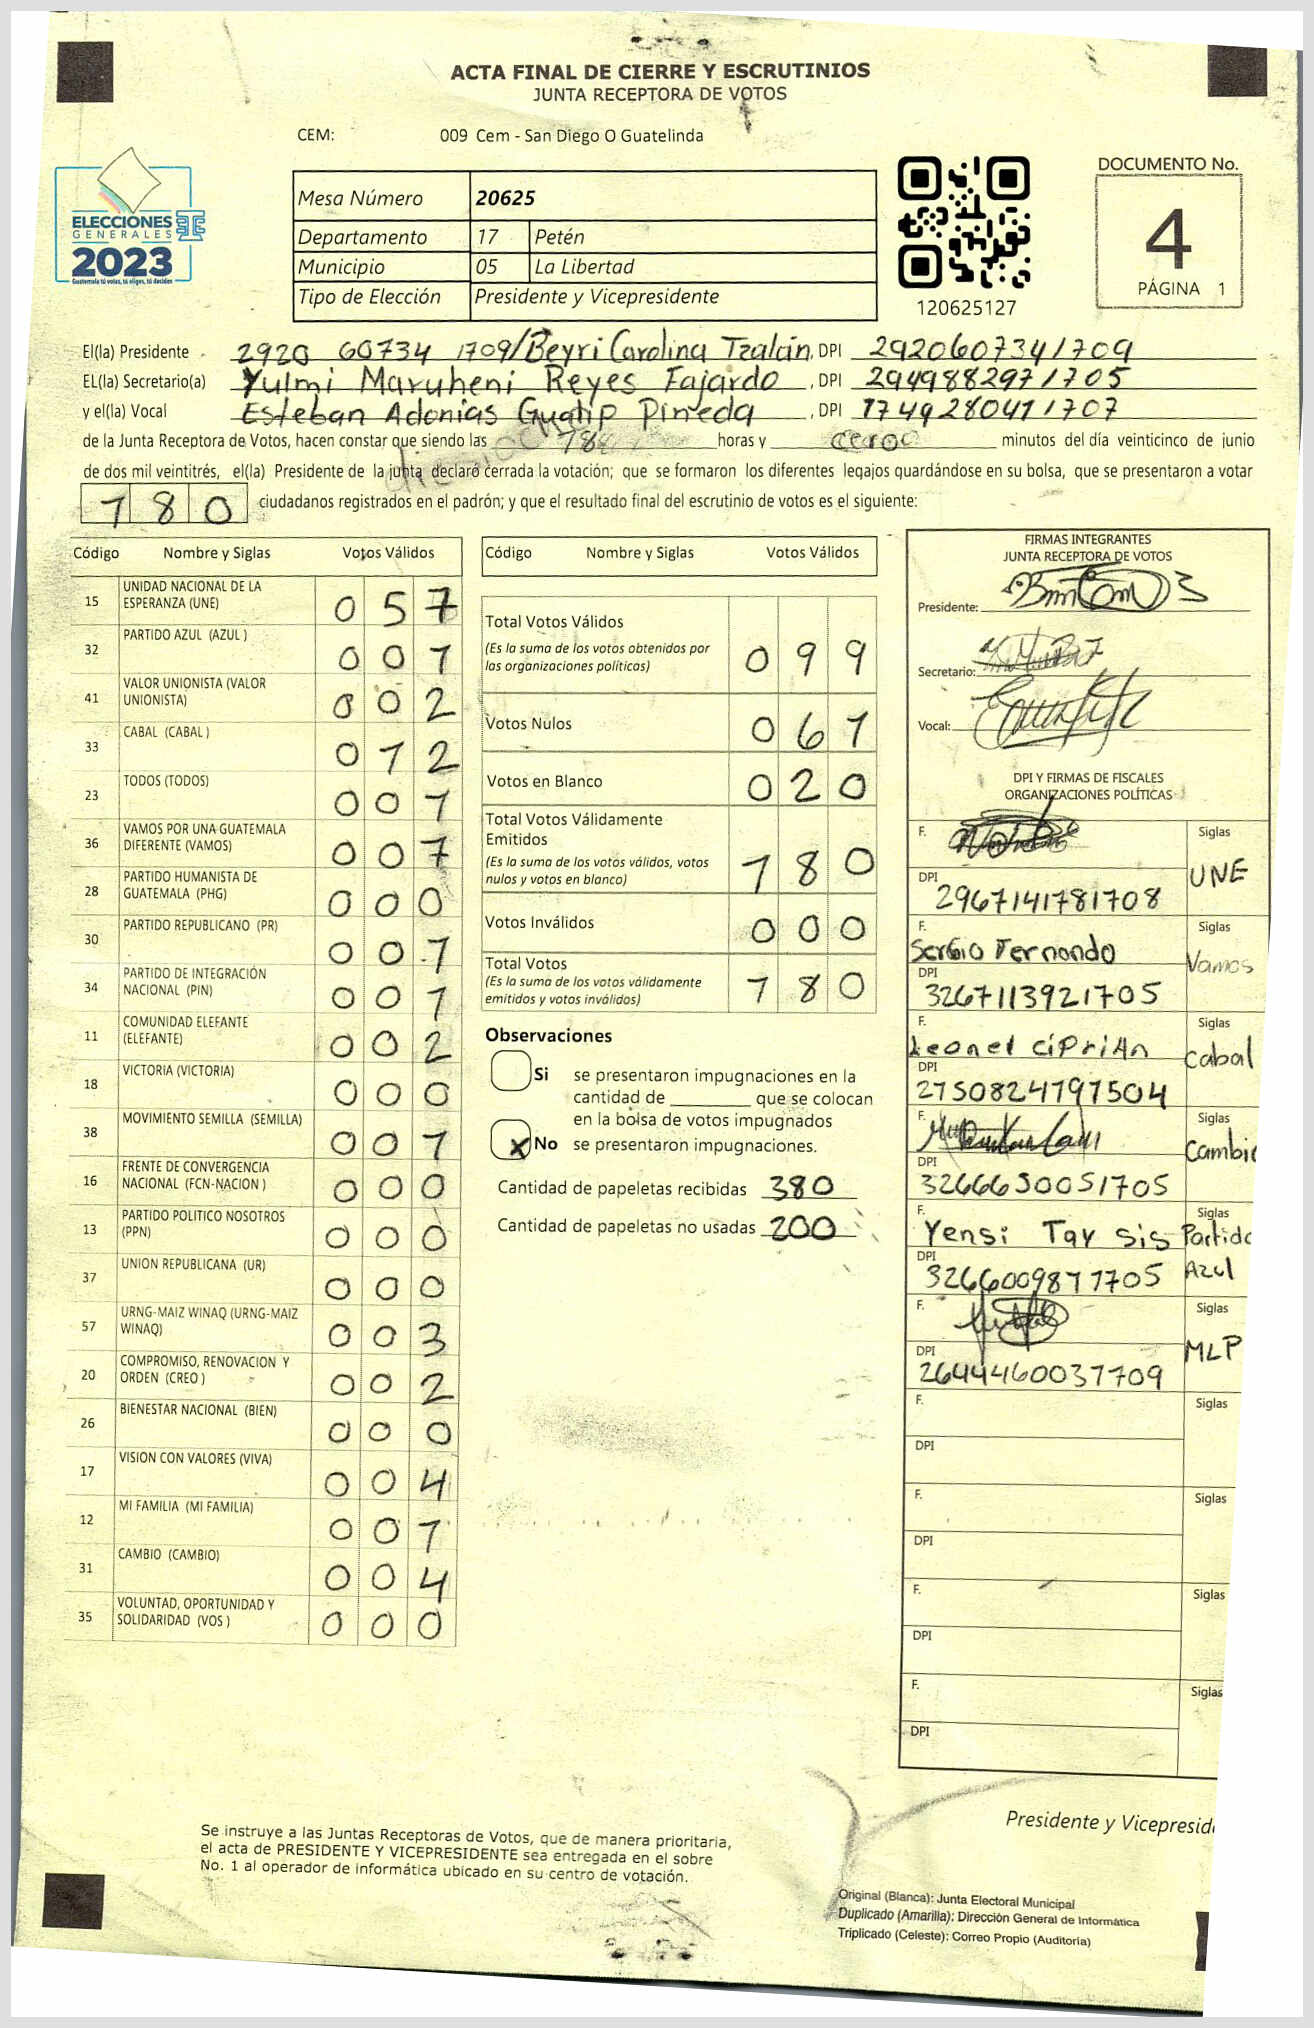 ACTA FINAL DE CIERRE Y ESCRUTINIOS
JUNTA RECEPTORA DE VOTOS
CEM: 009 Cem - San Diego O Guatelinda
ELECCIONES
GENERALES
2023
Guatemala tú votas, tú eliges, tú decides
Mesa Número 20625
Departamento 17 Petén
Municipio 05 La Libertad
Tipo de Elección Presidente y Vicepresidente
120625127
DOCUMENTO No.
4
PÁGINA 1
El(la) Presidente 2920 60734 1709/Beyri Carolina Tzalán, DPI 2920607341709
EL(la) Secretario(a) Yulmi Maruheni Reyes Fajardo, DPI 2949882971705
y el(la) Vocal Esteban Adonias Guatip Pineda, DPI 1749280411707
de la Junta Receptora de Votos, hacen constar que siendo las horas y cero minutos del día veinticinco de junio
de dos mil veintitrés, el(la) Presidente de la junta declaró cerrada la votación; que se formaron los diferentes legajos guardándose en su bolsa, que se presentaron a votar
180 ciudadanos registrados en el padrón; y que el resultado final del escrutinio de votos es el siguiente:
Código Nombre y Siglas Votos Válidos
15 UNIDAD NACIONAL DE LA ESPERANZA (UNE) 057
32 PARTIDO AZUL (AZUL ) 001
41 VALOR UNIONISTA (VALOR UNIONISTA) 002
33 CABAL (CABAL ) 012
23 TODOS (TODOS) 001
36 VAMOS POR UNA GUATEMALA DIFERENTE (VAMOS) 007
28 PARTIDO HUMANISTA DE GUATEMALA (PHG) 000
30 PARTIDO REPUBLICANO (PR) 001
34 PARTIDO DE INTEGRACIÓN NACIONAL (PIN) 001
11 COMUNIDAD ELEFANTE (ELEFANTE) 002
18 VICTORIA (VICTORIA) 000
38 MOVIMIENTO SEMILLA (SEMILLA) 001
16 FRENTE DE CONVERGENCIA NACIONAL (FCN-NACION ) 000
13 PARTIDO POLITICO NOSOTROS (PPN) 000
37 UNION REPUBLICANA (UR) 000
57 URNG-MAIZ WINAQ (URNG-MAIZ WINAQ) 003
20 COMPROMISO, RENOVACION Y ORDEN (CREO ) 002
26 BIENESTAR NACIONAL (BIEN) 000
17 VISION CON VALORES (VIVA) 004
12 MI FAMILIA (MI FAMILIA) 001
31 CAMBIO (CAMBIO) 004
35 VOLUNTAD, OPORTUNIDAD Y SOLIDARIDAD (VOS ) 000
Código Nombre y Siglas Votos Válidos
Total Votos Válidos 099
(Es la suma de los votos obtenidos por las organizaciones políticas)
Votos Nulos 061
Votos en Blanco 020
Total Votos Válidamente Emitidos 180
(Es la suma de los votos válidos, votos nulos y votos en blanco)
Votos Inválidos 000
Total Votos 180
(Es la suma de los votos válidamente emitidos y votos inválidos)
Observaciones
Si se presentaron impugnaciones en la
cantidad de ________ que se colocan
en la bolsa de votos impugnados
x No se presentaron impugnaciones.
Cantidad de papeletas recibidas 380
Cantidad de papeletas no usadas 200
FIRMAS INTEGRANTES
JUNTA RECEPTORA DE VOTOS
Presidente:
Secretario:
Vocal:
DPI Y FIRMAS DE FISCALES
ORGANIZACIONES POLÍTICAS
F. Siglas UNE
DPI 2967141781708
F. Sergio Fernando Siglas Vamos
DPI 3267113921705
F. Leonel CiPriAn Siglas Cabal
DPI 2750824797504
F. Siglas Cambio
DPI 3266630051705
F. Yensi Tay Sis Siglas Partido Azul
DPI 3266009871705
F. Siglas MLP
DPI 2644460037709
F. Siglas
DPI
F. Siglas
DPI
F. Siglas
DPI
F. Siglas
DPI
Presidente y Vicepresid
Se instruye a las Juntas Receptoras de Votos, que de manera prioritaria,
el acta de PRESIDENTE Y VICEPRESIDENTE sea entregada en el sobre
No. 1 al operador de informática ubicado en su centro de votación.
Original (Blanca): Junta Electoral Municipal
Duplicado (Amarilla): Dirección General de Informática
Triplicado (Celeste): Correo Propio (Auditoría)